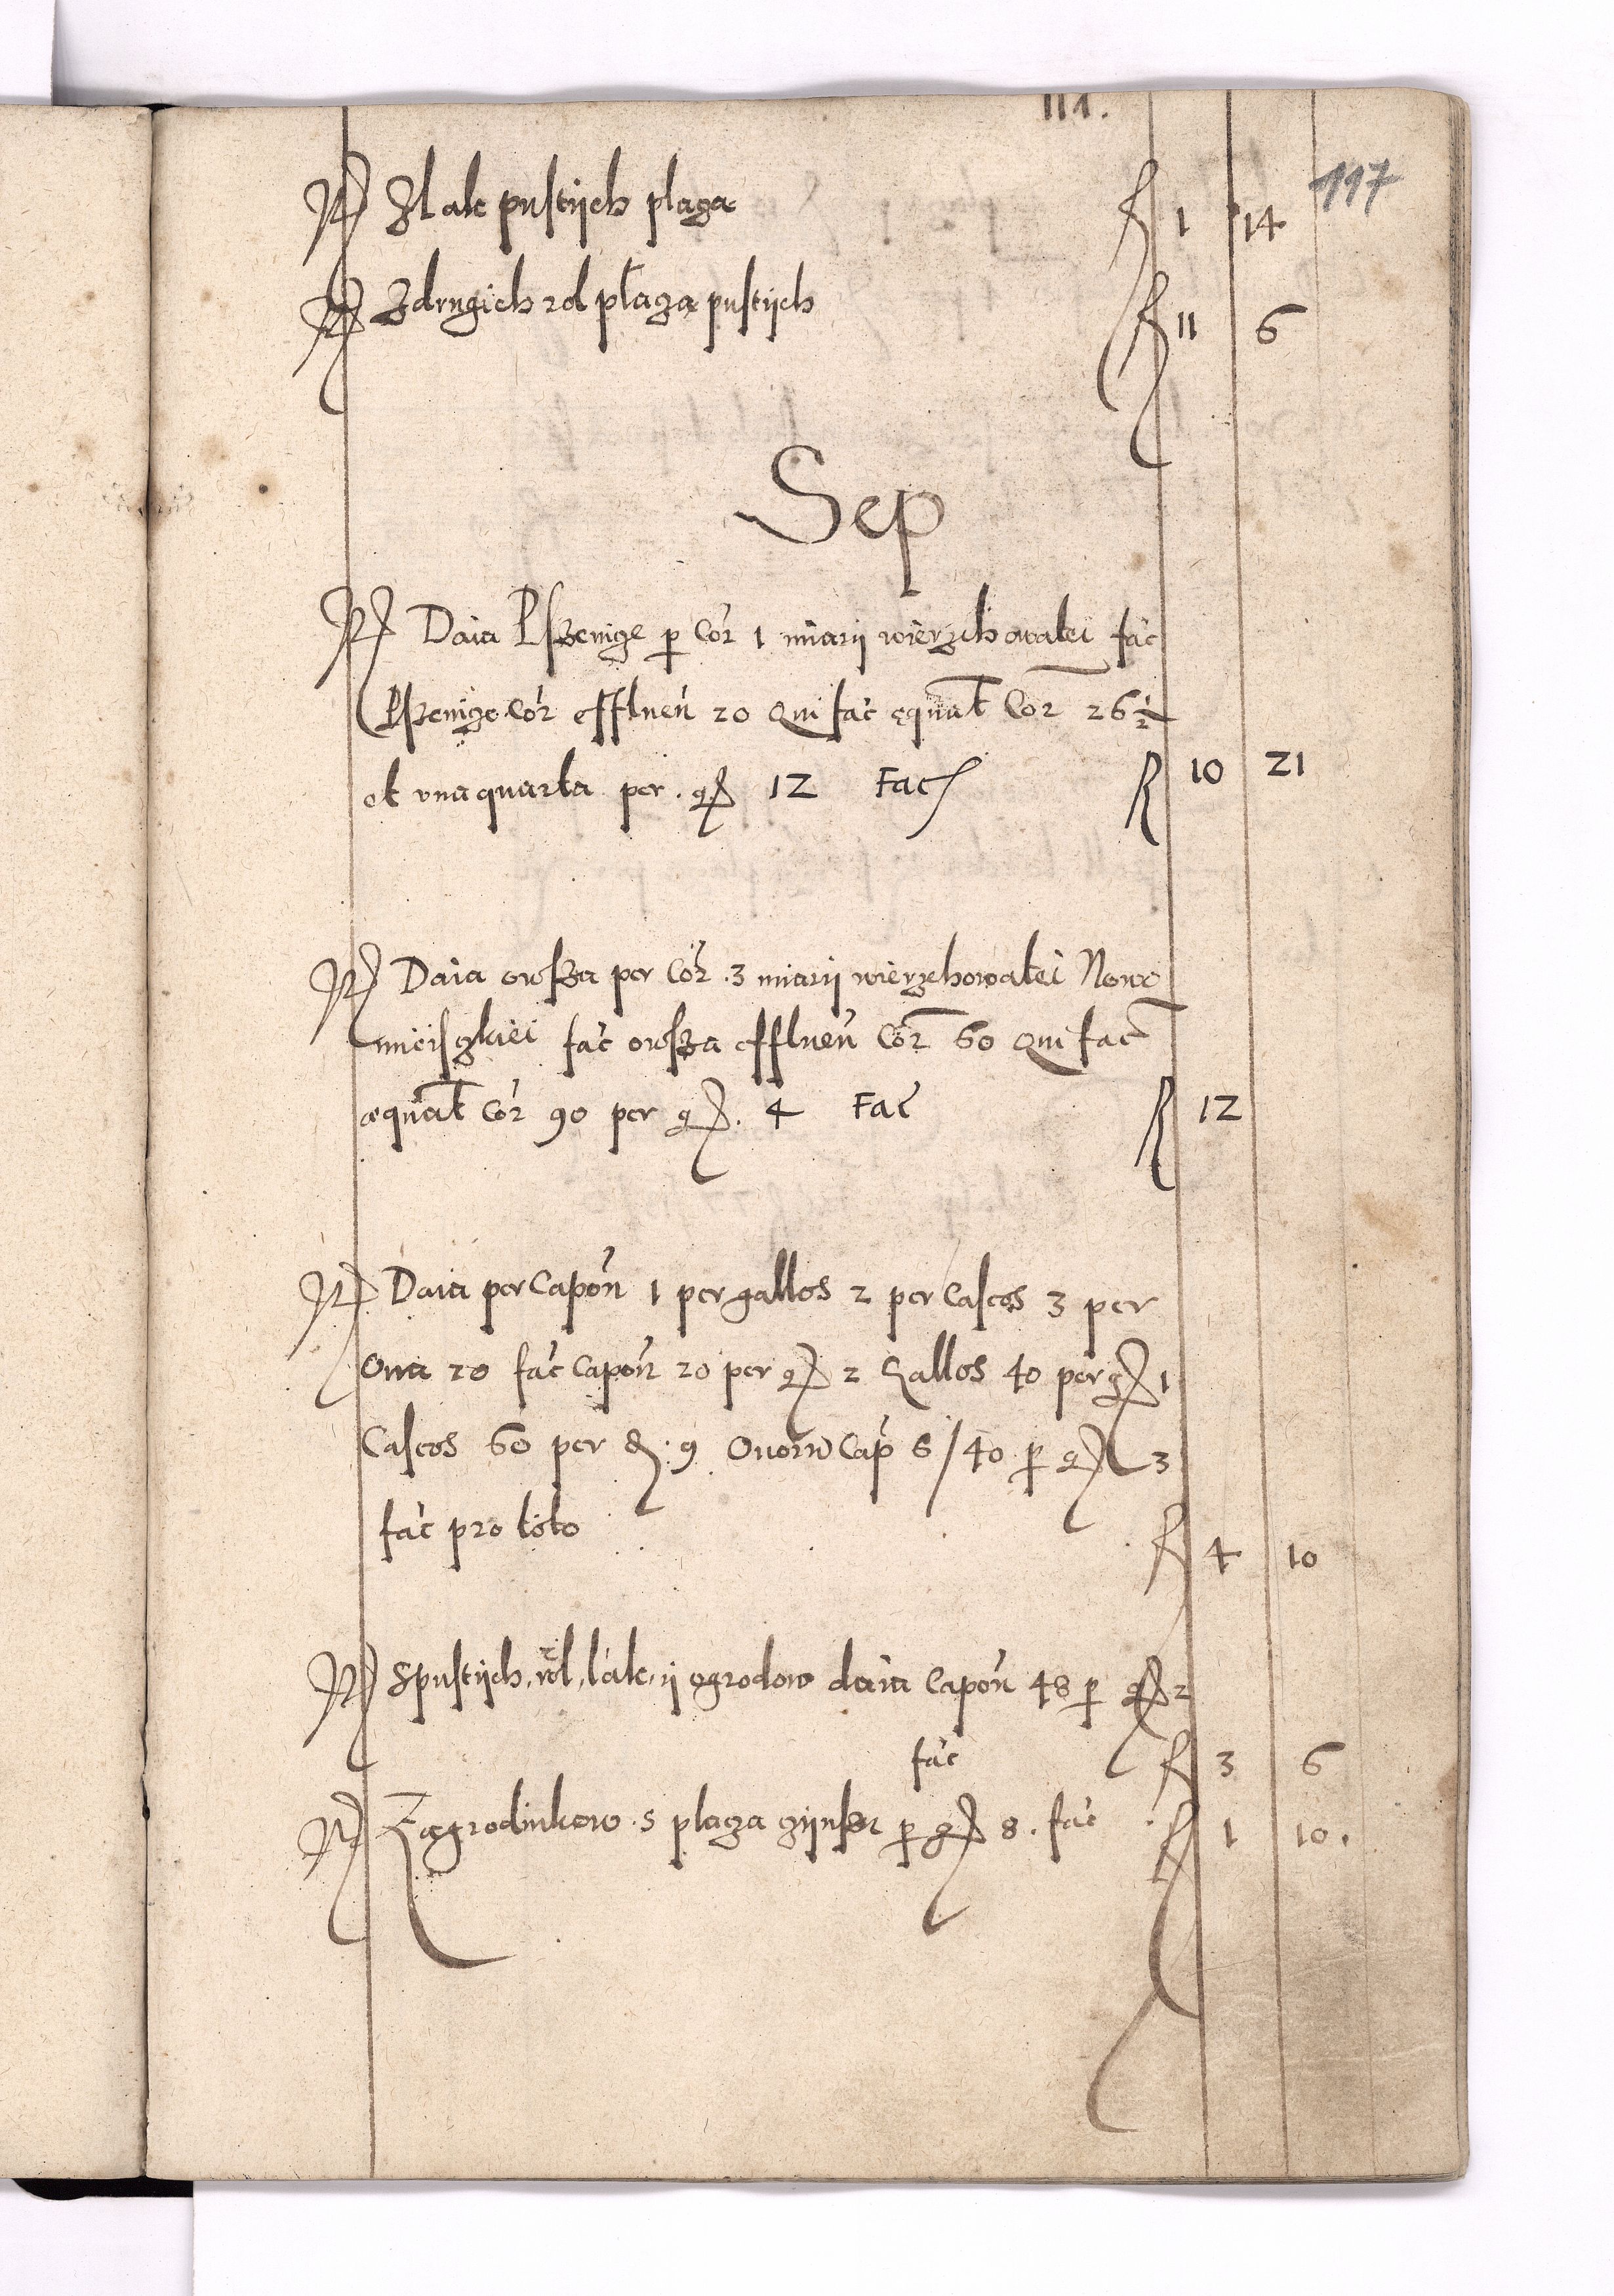 111.
117
Zl ak pustijch plaza 1 14
Zdrugich rol plaza pustijch 11 6
Sep
Daia Pszenige p Cor 1 miarij wierzchowatei fac
Pszenige Cor effluen 20 Qui fac equat Cor 26 ½
et vna quarta per. g 12 Fac 10 21
Daia owsza per Cor. 3 miarij wierzchowatei Nowo
mieiszkiei fac owsza effluen Cor 60 Qui fac
æquat Cor 90 per g. 4 Fac 12
Daia per Capon 1 per gallos 2 per Caseos 3 per
Oua 20 fac Capon 20 per g 2 Gallos 40 per g 1
Caseos 60 per d. 9 Ouoru Cap 6/40 p g 3
fac pro toto 4 10
Spustijch, rol, lak, ij ogrodow daia Capon 48 p g 2
fac 3 6
Zagrodnikow. 5 plaza zijnszu p g 8. fac 1 10.